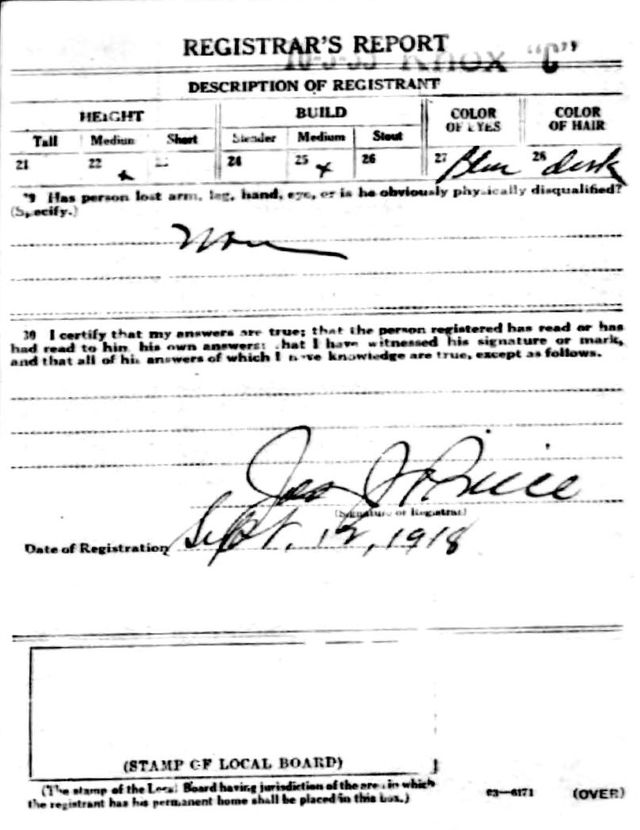 REGISTRAR'S REPORT
10-3-35 Knox "C"
DESCRIPTION OF REGISTRANT
HEIGHT BUILD COLOR OF EYES COLOR OF HAIR
Tall Medium Short Slender Medium Stout
21 22 x 23 24 25 x 26 27 Blue 28 dark
29 Has person lost arm, leg, hand, eye, or is he obviously physically disqualified?
(Specify.)
None
30 I certify that my answers are true; that the person registered has read or has
had read to him his own answers; that I have witnessed his signature or mark,
and that all of his answers of which I have knowledge are true, except as follows.
Price
(Signature of Registrar)
Date of Registration Sept. 12, 1918
(STAMP OF LOCAL BOARD)
(The stamp of the Local Board having jurisdiction of the area in which
the registrant has his permanent home shall be placed in this box.)
03—6171 (OVER)